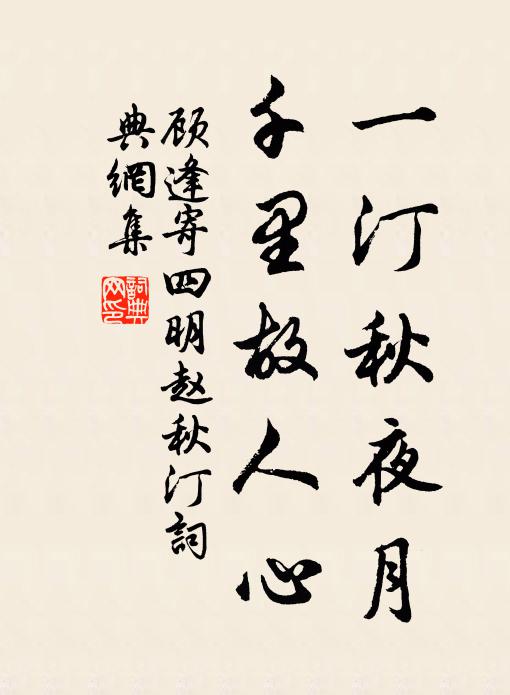 一汀秋夜月
千里故人心
顾逢寄四明赵秋汀詞
典網集
詞典网印